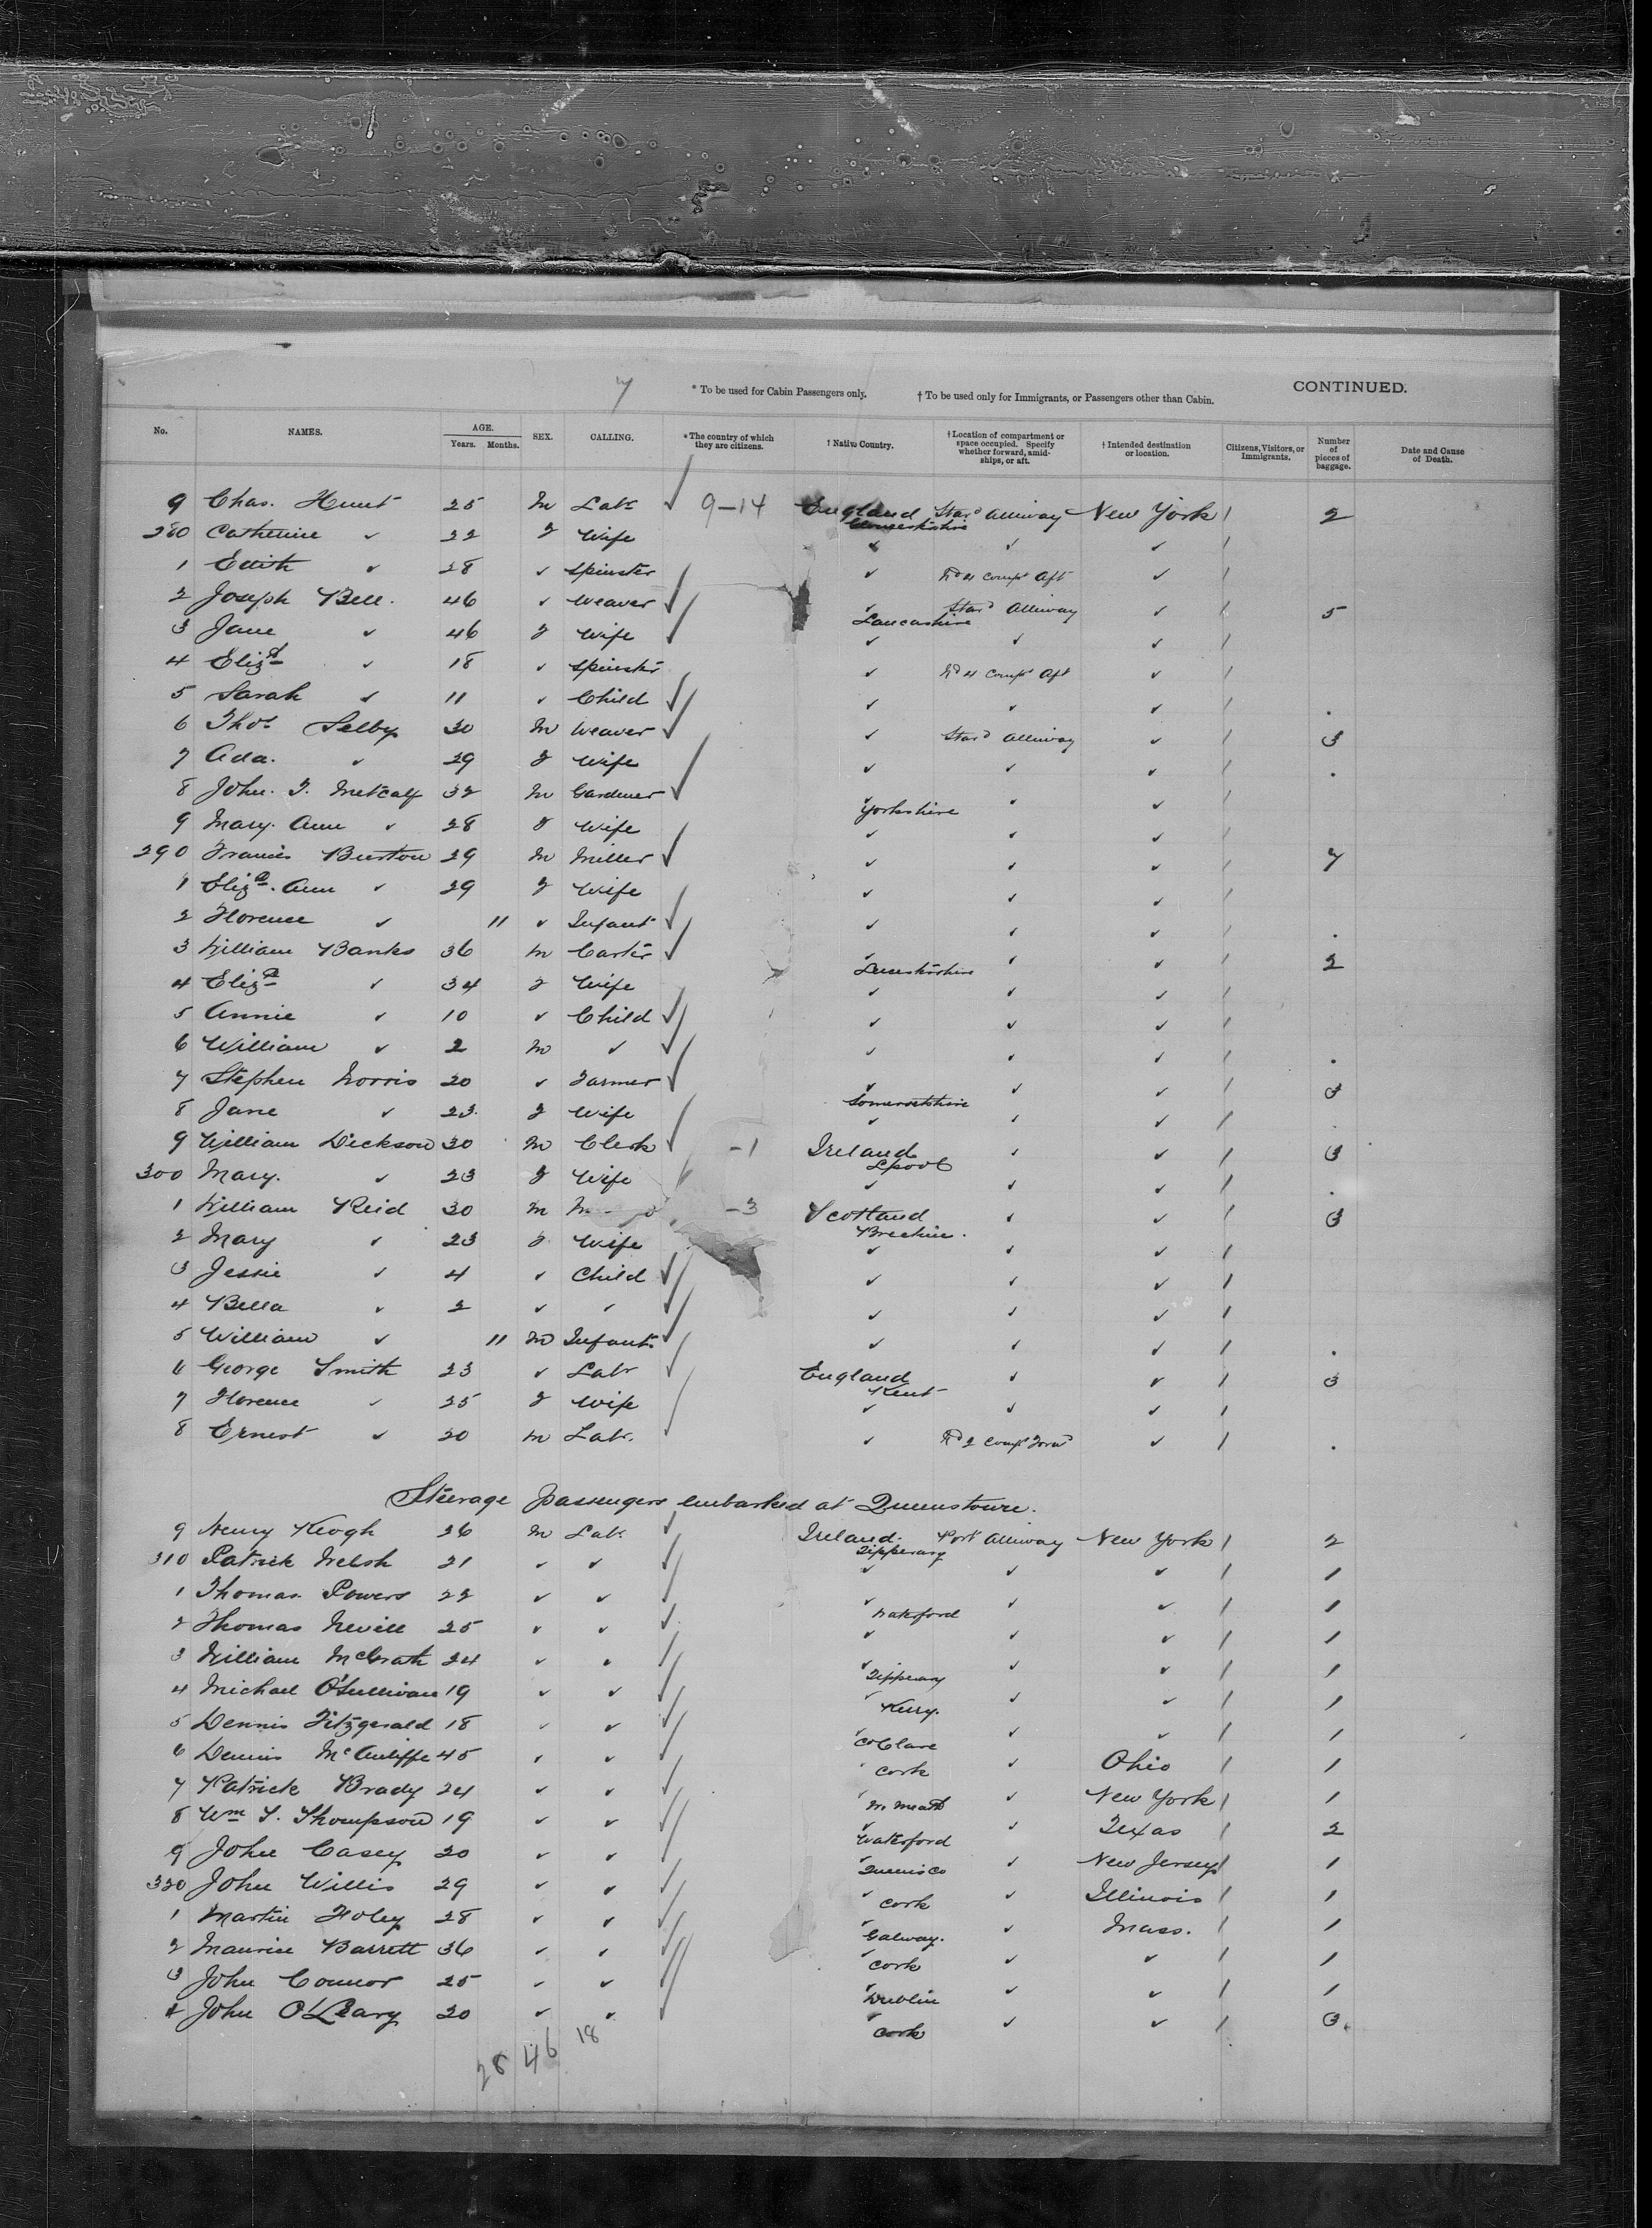 7 * To be used for Cabin Passengers only. † To be used only for Immigrants, or Passengers other than Cabin. CONTINUED.
No. NAMES. AGE. Years. Months. SEX. CALLING. * The country of which they are citizens. † Native Country. † Location of compartment or space occupied. Specify whether forward, amidships, or aft. † Intended destination or location. Citizens, Visitors, or Immigrants. Number of pieces of baggage. Date and Cause of Death.
9 Chas. Hunt 25 m Labr ✓ 9-14 England Star'd Alleway New York / 2
280 Catherine ✓ 22 F Wife ✓ ✓ ✓ /
1 Edith ✓ 28 ✓ Spinster ✓ No 4 Compt Aft ✓ /
2 Joseph Bell. 46 ✓ Weaver ✓ ✓ Lancashire Star'd Alleway ✓ / 5
3 Jane ✓ 46 F Wife ✓ ✓ ✓ /
4 Elizth ✓ 18 ✓ Spinster ✓ No 4 Compt Aft ✓ /
5 Sarah ✓ 11 ✓ Child ✓ ✓ ✓ ✓ /
6 Thos Selby 30 m Weaver ✓ ✓ Star'd Alleway ✓ / 3
7 Ada. ✓ 29 F Wife ✓ ✓ ✓ /
8 John. F. Metcalf 32 m Gardener ✓ ✓ Yorkshire ✓ ✓ /
9 Mary. Ann ✓ 28 F Wife ✓ ✓ ✓ /
290 Francis Burton 29 m Miller ✓ ✓ ✓ ✓ / 7
1 Elizth. Ann ✓ 29 F Wife ✓ ✓ ✓ /
2 Florence ✓ 11 ✓ Infant ✓ ✓ ✓ ✓ /
3 William Banks 36 m Carter ✓ ✓ ✓ ✓ / 2
4 Elizth ✓ 34 F Wife ✓ ✓ ✓ /
5 Annie ✓ 10 ✓ Child ✓ ✓ ✓ ✓ /
6 William ✓ 2 m ✓ ✓ ✓ ✓ ✓ /
7 Stephen Norris 20 ✓ Farmer ✓ ✓ Somersetshire ✓ ✓ / 3
8 Jane ✓ 23 F Wife ✓ ✓ ✓ /
9 William Dickson 30 m Clerk ✓ -1 Ireland Lpool ✓ ✓ / 3
300 Mary. ✓ 23 F Wife ✓ ✓ ✓ /
1 William Reid 30 m -3 Scotland Brechin. ✓ ✓ / 3
2 Mary ✓ 23 F Wife ✓ ✓ ✓ /
3 Jessie ✓ 4 ✓ Child ✓ ✓ ✓ ✓ /
4 Bella ✓ 2 ✓ ✓ ✓ ✓ ✓ ✓ /
5 William ✓ 11 m Infant ✓ ✓ ✓ ✓ /
6 George Smith 23 ✓ Labr ✓ England Kent ✓ ✓ / 3
7 Florence ✓ 25 F Wife ✓ ✓ ✓ /
8 Ernest ✓ 20 m Labr. ✓ ✓ No 2 Compt Forwd ✓ /
Steerage passengers embarked at Queenstown.
9 Henry Keogh 26 m Labr ✓ Ireland. Tipperary Port Alleway New York / 2
310 Patrick Welsh 21 ✓ ✓ ✓ ✓ ✓ ✓ / 1
1 Thomas Powers 22 ✓ ✓ ✓ ✓ Waterford ✓ ✓ / 1
2 Thomas Nevill 25 ✓ ✓ ✓ ✓ ✓ ✓ / 1
3 William McGrath 24 ✓ ✓ ✓ ✓ Tipperary ✓ ✓ / 1
4 Michael O'Sullivan 19 ✓ ✓ ✓ ✓ Kerry. ✓ ✓ / 1
5 Dennis Fitzgerald 18 ✓ ✓ ✓ ✓ Co Clare ✓ ✓ / 1
6 Dennis McAuliffe 45 ✓ ✓ ✓ ✓ Cork ✓ Ohio / 1
7 Patrick Brady 24 ✓ ✓ ✓ ✓ W. Meath ✓ New York / 1
8 Wm T. Thompson 19 ✓ ✓ ✓ ✓ Waterford ✓ Texas / 2
9 John Casey 20 ✓ ✓ ✓ ✓ Queens Co ✓ New Jersey / 1
320 John Willis 29 ✓ ✓ ✓ ✓ Cork ✓ Illinois / 1
1 Martin Foley 28 ✓ ✓ ✓ ✓ Galway. ✓ Mass. / 1
2 Maurice Barrett 36 ✓ ✓ ✓ ✓ Cork ✓ ✓ / 1
3 John Connor 25 ✓ ✓ ✓ ✓ Dublin ✓ ✓ / 1
4 John O'Leary 20 ✓ ✓ ✓ ✓ Cork ✓ ✓ / 3.
28 46 18